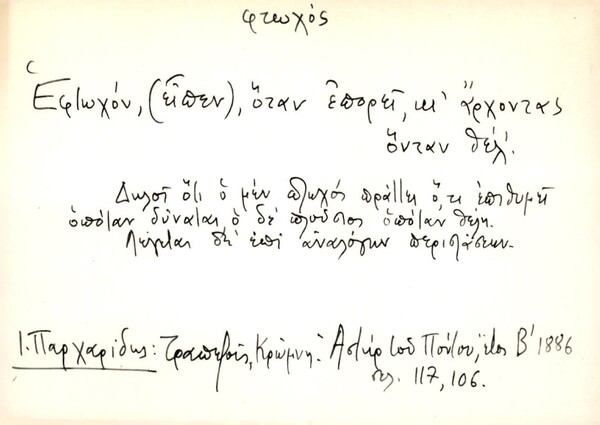 φτωχός
Ἐφτωχόν, (εἶπεν), ὅταν ἐπορεῖ, κι' ἄρχοντας
ὅνταν θέλ'.
Δηλοῖ ὅτι ὁ μὲν πτωχός πράττει ὅ,τι ἐπιθυμεῖ
ὁπόταν δύναται ὁ δὲ πλούσιος ὁπόταν θέλῃ.
Λέγεται δὲ ἐπὶ ἀναλόγων περιστάσεων.
Ι. Παρχαρίδης: Τραπεζοῦς, Κρώμνη: Ἀστὴρ τοῦ Πόντου, ἔτος Β' 1886
σελ. 117, 106.